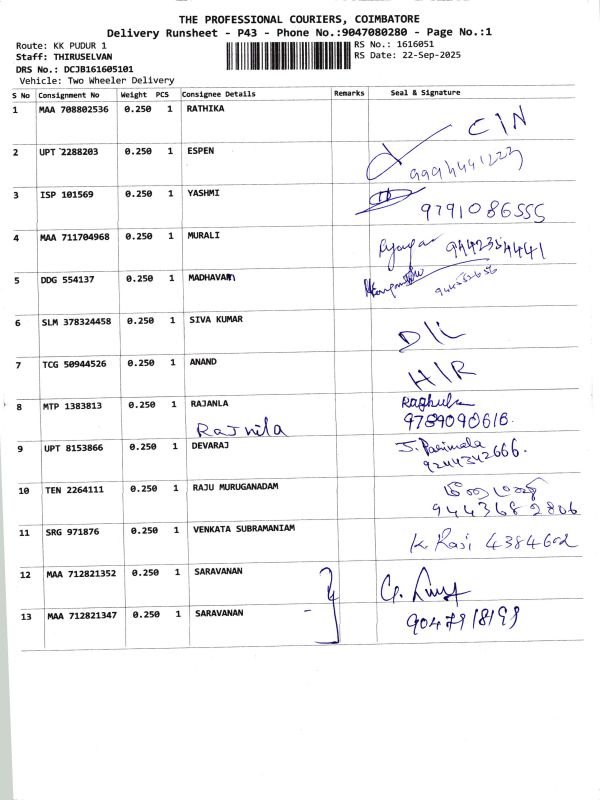 THE PROFESSIONAL COURIERS, COIMBATORE
Delivery Runsheet - P43 - Phone No.:9047080280 - Page No.:1
Route: KK PUDUR 1
RS No.: 1616051
Staff: THIRUSELVAN
RS Date: 22-Sep-2025
DRS No.: DCJB161605101
Vehicle: Two Wheeler Delivery
S No Consignment No Weight PCS Consignee Details Remarks Seal & Signature
1 MAA 708802536 0.250 1 RATHIKA C/N
2 UPT 2288203 0.250 1 ESPEN
3 ISP 101569 0.250 1 YASHMI
9791086555
4 MAA 711704968 0.250 1 MURALI
5 DDG 554137 0.250 1 MADHAVAN
6 SLM 378324458 0.250 1 SIVA KUMAR
D/L
7 TCG 50944526 0.250 1 ANAND
H/R
8 MTP 1383813 0.250 1 RAJANLA Raghul
Rajnila 9789090616.
9 UPT 8153866 0.250 1 DEVARAJ J. Parimala
9244342666.
10 TEN 2264111 0.250 1 RAJU MURUGANADAM
9443682806
11 SRG 971876 0.250 1 VENKATA SUBRAMANIAM
K. Raji 4384602
12 MAA 712821352 0.250 1 SARAVANAN
13 MAA 712821347 0.250 1 SARAVANAN
9047918199